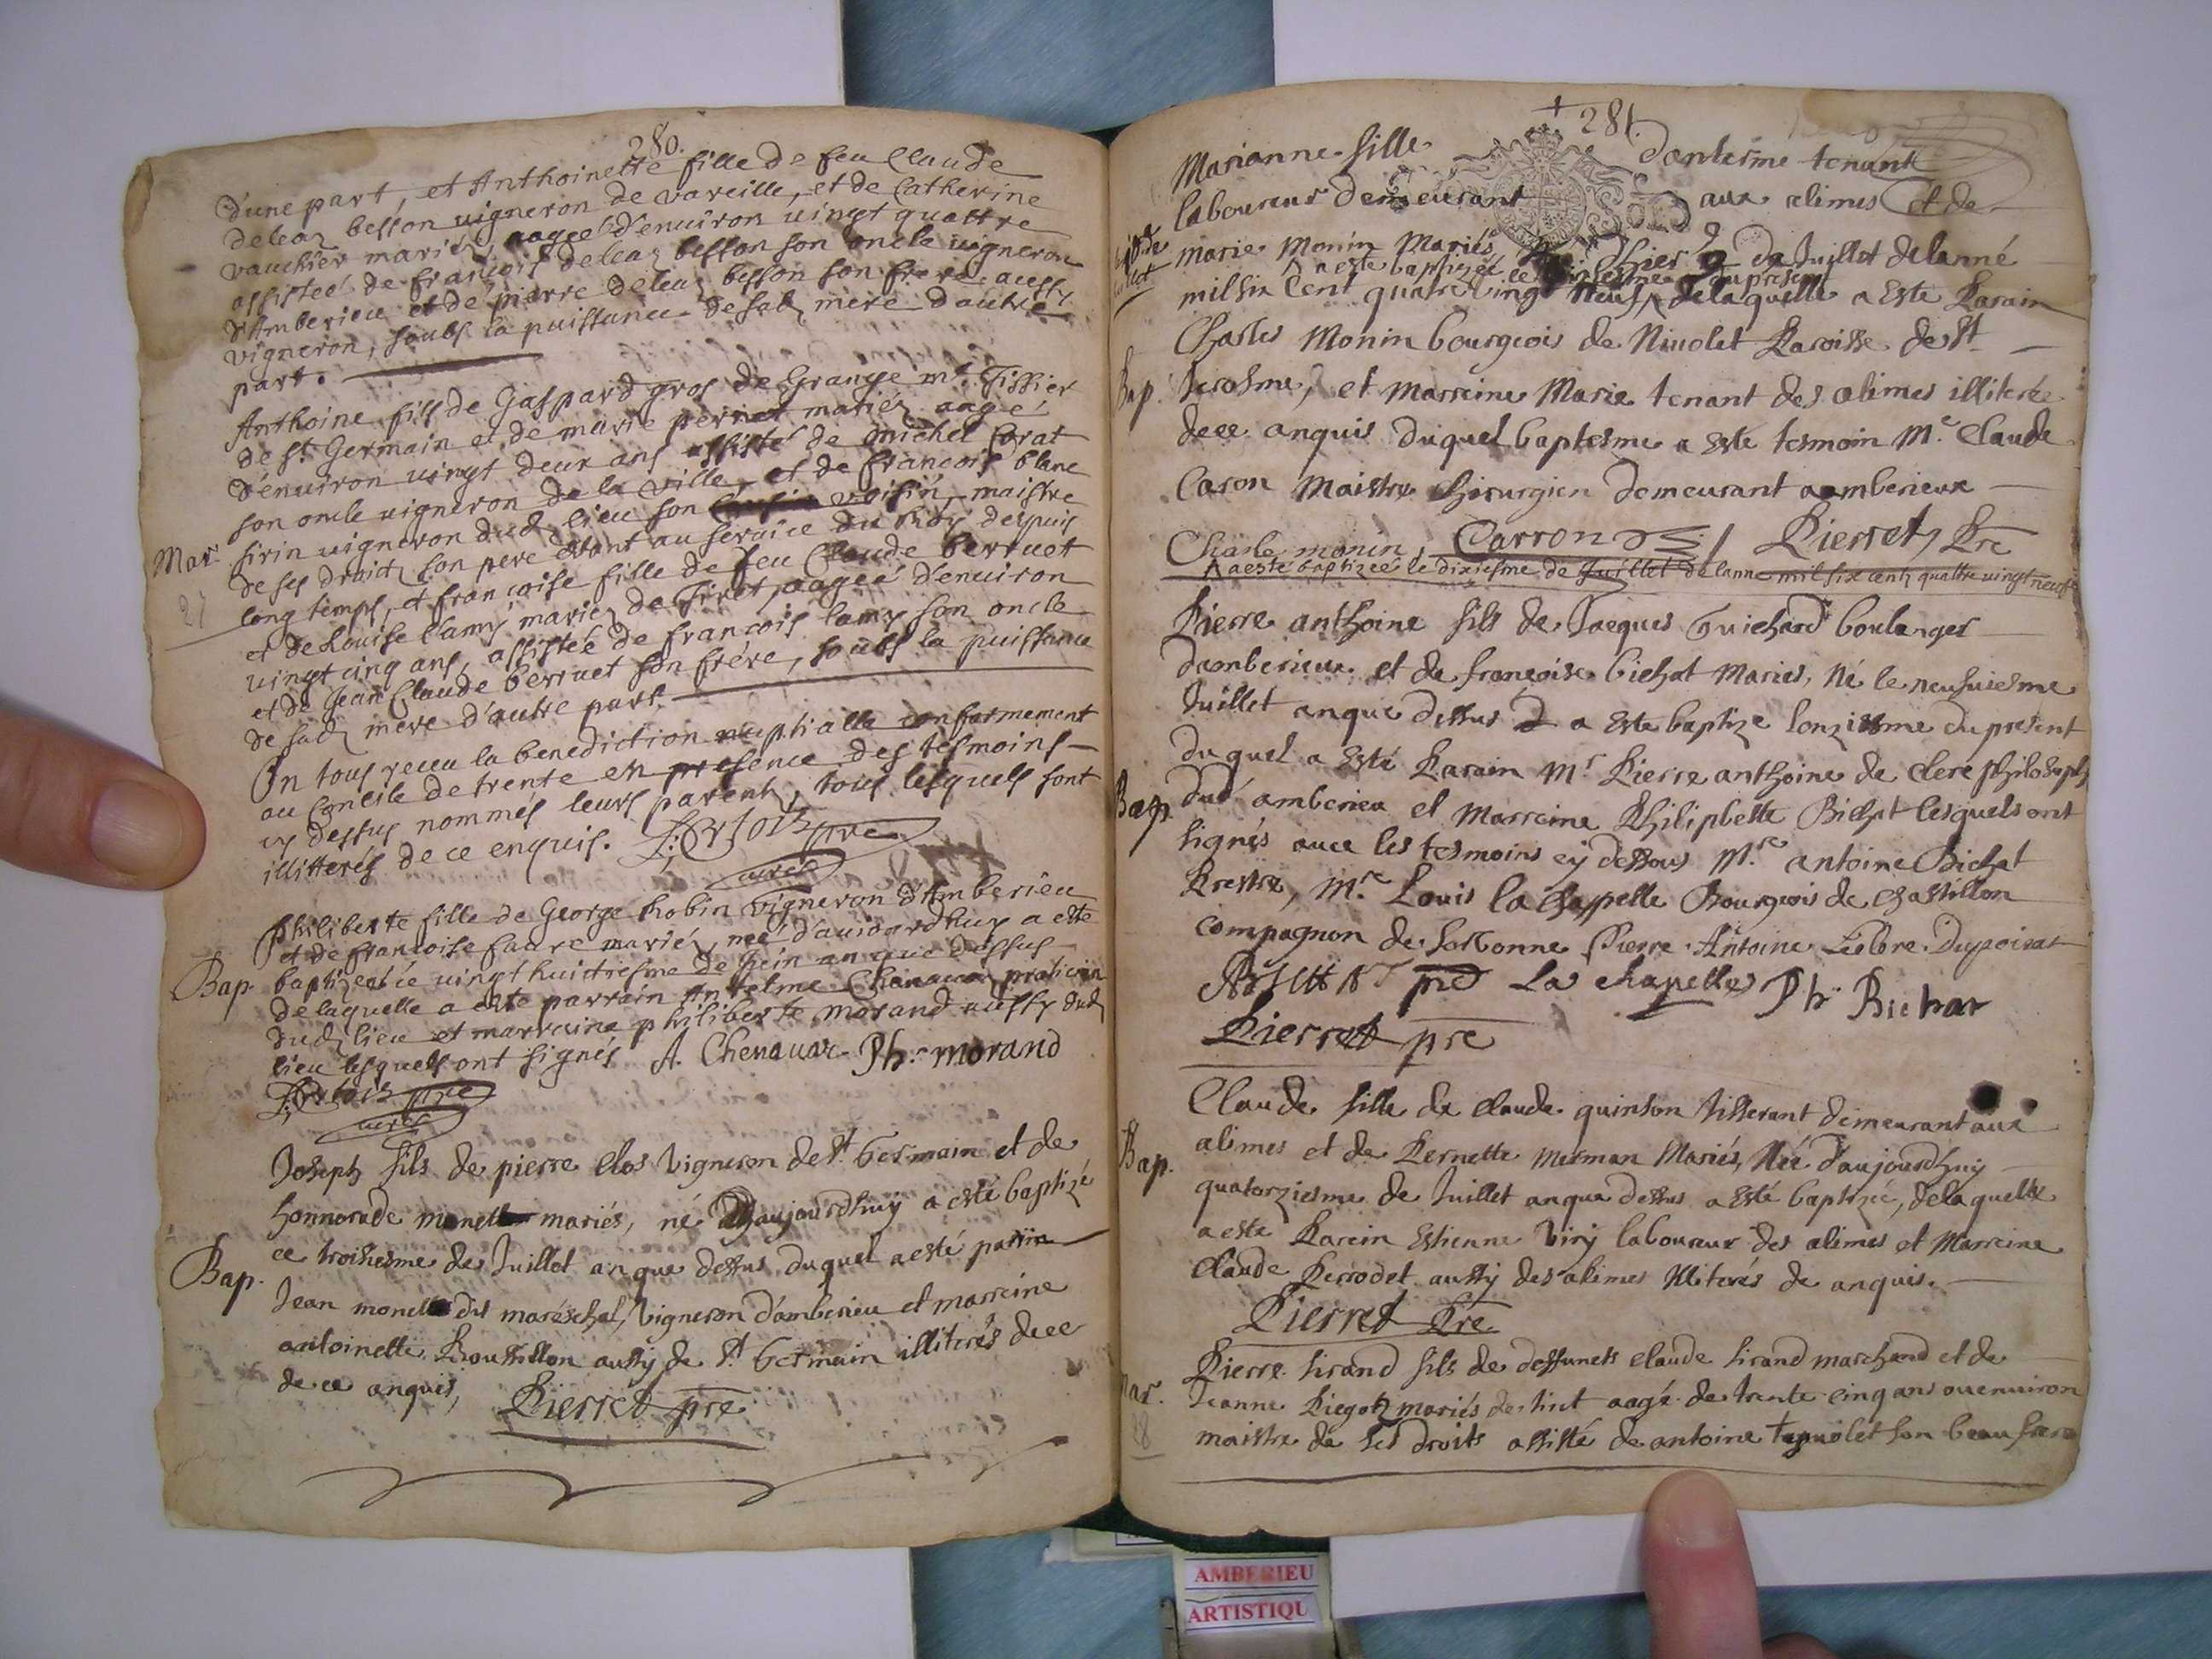 280.
d'une part, et Anthoinette fille de feu Claude
deleaz besson vigneron de vareille, et de Catherine
vauchier mariéz, aagée d'enuiron uingt quattre
assistée de françois deleaz besson son oncle uigneron
d'Amberieu et de pierre deleaz besson son frere aussy
vigneron, soubs la puissance de sad mere d'autre
part.
Anthoine fils de Gaspard gros de Grange me Tissier
de st Germain et de marie pernet mariéz aagé
d'enuiron uingt deux ans assisté de michel Corat
son oncle uigneron de la ville, et de francois blanc
sirin uigneron dud lieu son voisin, maistre
Mar. de ses droictz son pere estant au seruice du Roy despuis
27 long temps, et francoise fille de feu Claude berruet
et de Louise lamy mariéz de tiret, aagée d'enuiron
uingt cinq ans, assistée de francois lamy son oncle
et de Jean Claude berruet son frére, soubs la puissance
de sad mere d'autre part.
On tous receu la benediction nuptialle conformement
au Concile de trente en presence des tesmoins
cy dessus nommés leurs parentz, tous lesquels sont
illitterés de ce enquis. pre
curé
Philiberte fille de George Robin vigneron d'Amberieu
et de francoise faure mariéz, neé d'auiourdhuy a esté
Bap. baptizeé ce uingt huictiesme de Juin an que dessus
delaquelle a esté parrain Antelme Chenauaz praticien
dud lieu et marraine philiberte morand aussy dud
lieu lesquels ont signés A. Chenauaz Ph: morand
pre
curé
Joseph fils de pierre Clos Vigneron de St Germain et de
honnorade monet mariés, né d'haujourdhuy a esté baptizé
ce troisiesme de Juillet an que dessus duquel a esté parrin
Bap. Jean monet dit maréschal, Vigneron d'amberieu et marreine
antoinette Roussillon aussy de St Germain illiterés de ce
de ce anquis, Pierret pre
281.
Marianne fille dantesme tenant
laboureur demeurant aux alimes et de
marie Monin Mariés hier 9 de Juillet de lanné
a este baptizeé ce du present
mil six Cent quatre vingt neuf, delaquelle a Este Parain
Charles Monin bourgeois de Niuolet Paroisse de St
Bap. Jerosme, et Marreine Marie tenant des alimes illiterée
de ce anquis duquel baptesme a Este tesmoin Me Claude
Caron Maistre Chirurgien demeurant a amberieux
Charle monin, Carron Pierret Pre
a esté baptizeé le dixiesme de Juillet de lanne mil six centz quattre uingt neuf
Pierre anthoine fils de Jacques Guichard boulanger
damberieux et de françoise bichat Maries, Né le neufuiesme
Juillet anque dessus a Este baptize lonziesme du present
duquel a Esté Parain Mr Pierre anthoine de clere philosoph
Bap. dud amberieu et Marreine Philipbette Bichat lesquels ont
signés auec les tesmoins cy dessous Mre antoine Bichat
Prestre, Mre Louis la chappelle Bourgeois de Chastillon
compagnon de Sorbonne Pierre Antoine
pre La chapelle Ph: Bichat
Pierret pre
Claude fille de Claude quinson tisserant demeurant aux
Bap. alimes et de Pernette Merman Mariés, Née d'aujourdhuy
quatorziesme de Juillet anque dessus a Esté baptizée, delaquelle
a este Parein Estienne Viry laboureur des alimes et Marreine
Claude Perrodet aussy des alimes Illiterés de anquis.
Pierret Pre
Pierre sirand fils de deffunets Claude sirand marchand et de
Mar. Jeanne mariés de tiret aagé de trente cinq ans ou enuiron
28 maistre de ses droits assisté de antoine son beau frere
AMBERIEU
ARTISTIQU